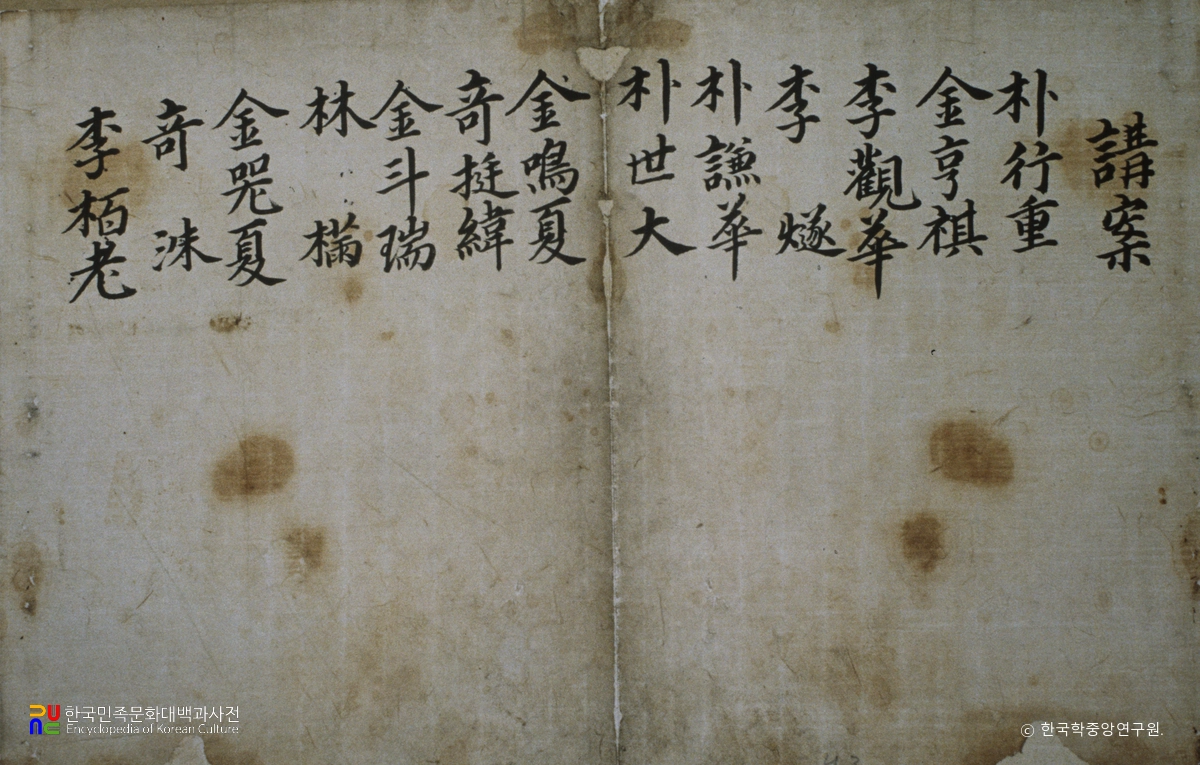 講案
朴行重
金亨祺
李觀華
李燧
朴謙華
朴世大
金鳴夏
奇挺緯
金斗瑞
林樠
金 夏
奇洙
李栢老
한국민족문화대백과사전
Encyclopedia of Korean Culture
ⓒ 한국학중앙연구원.